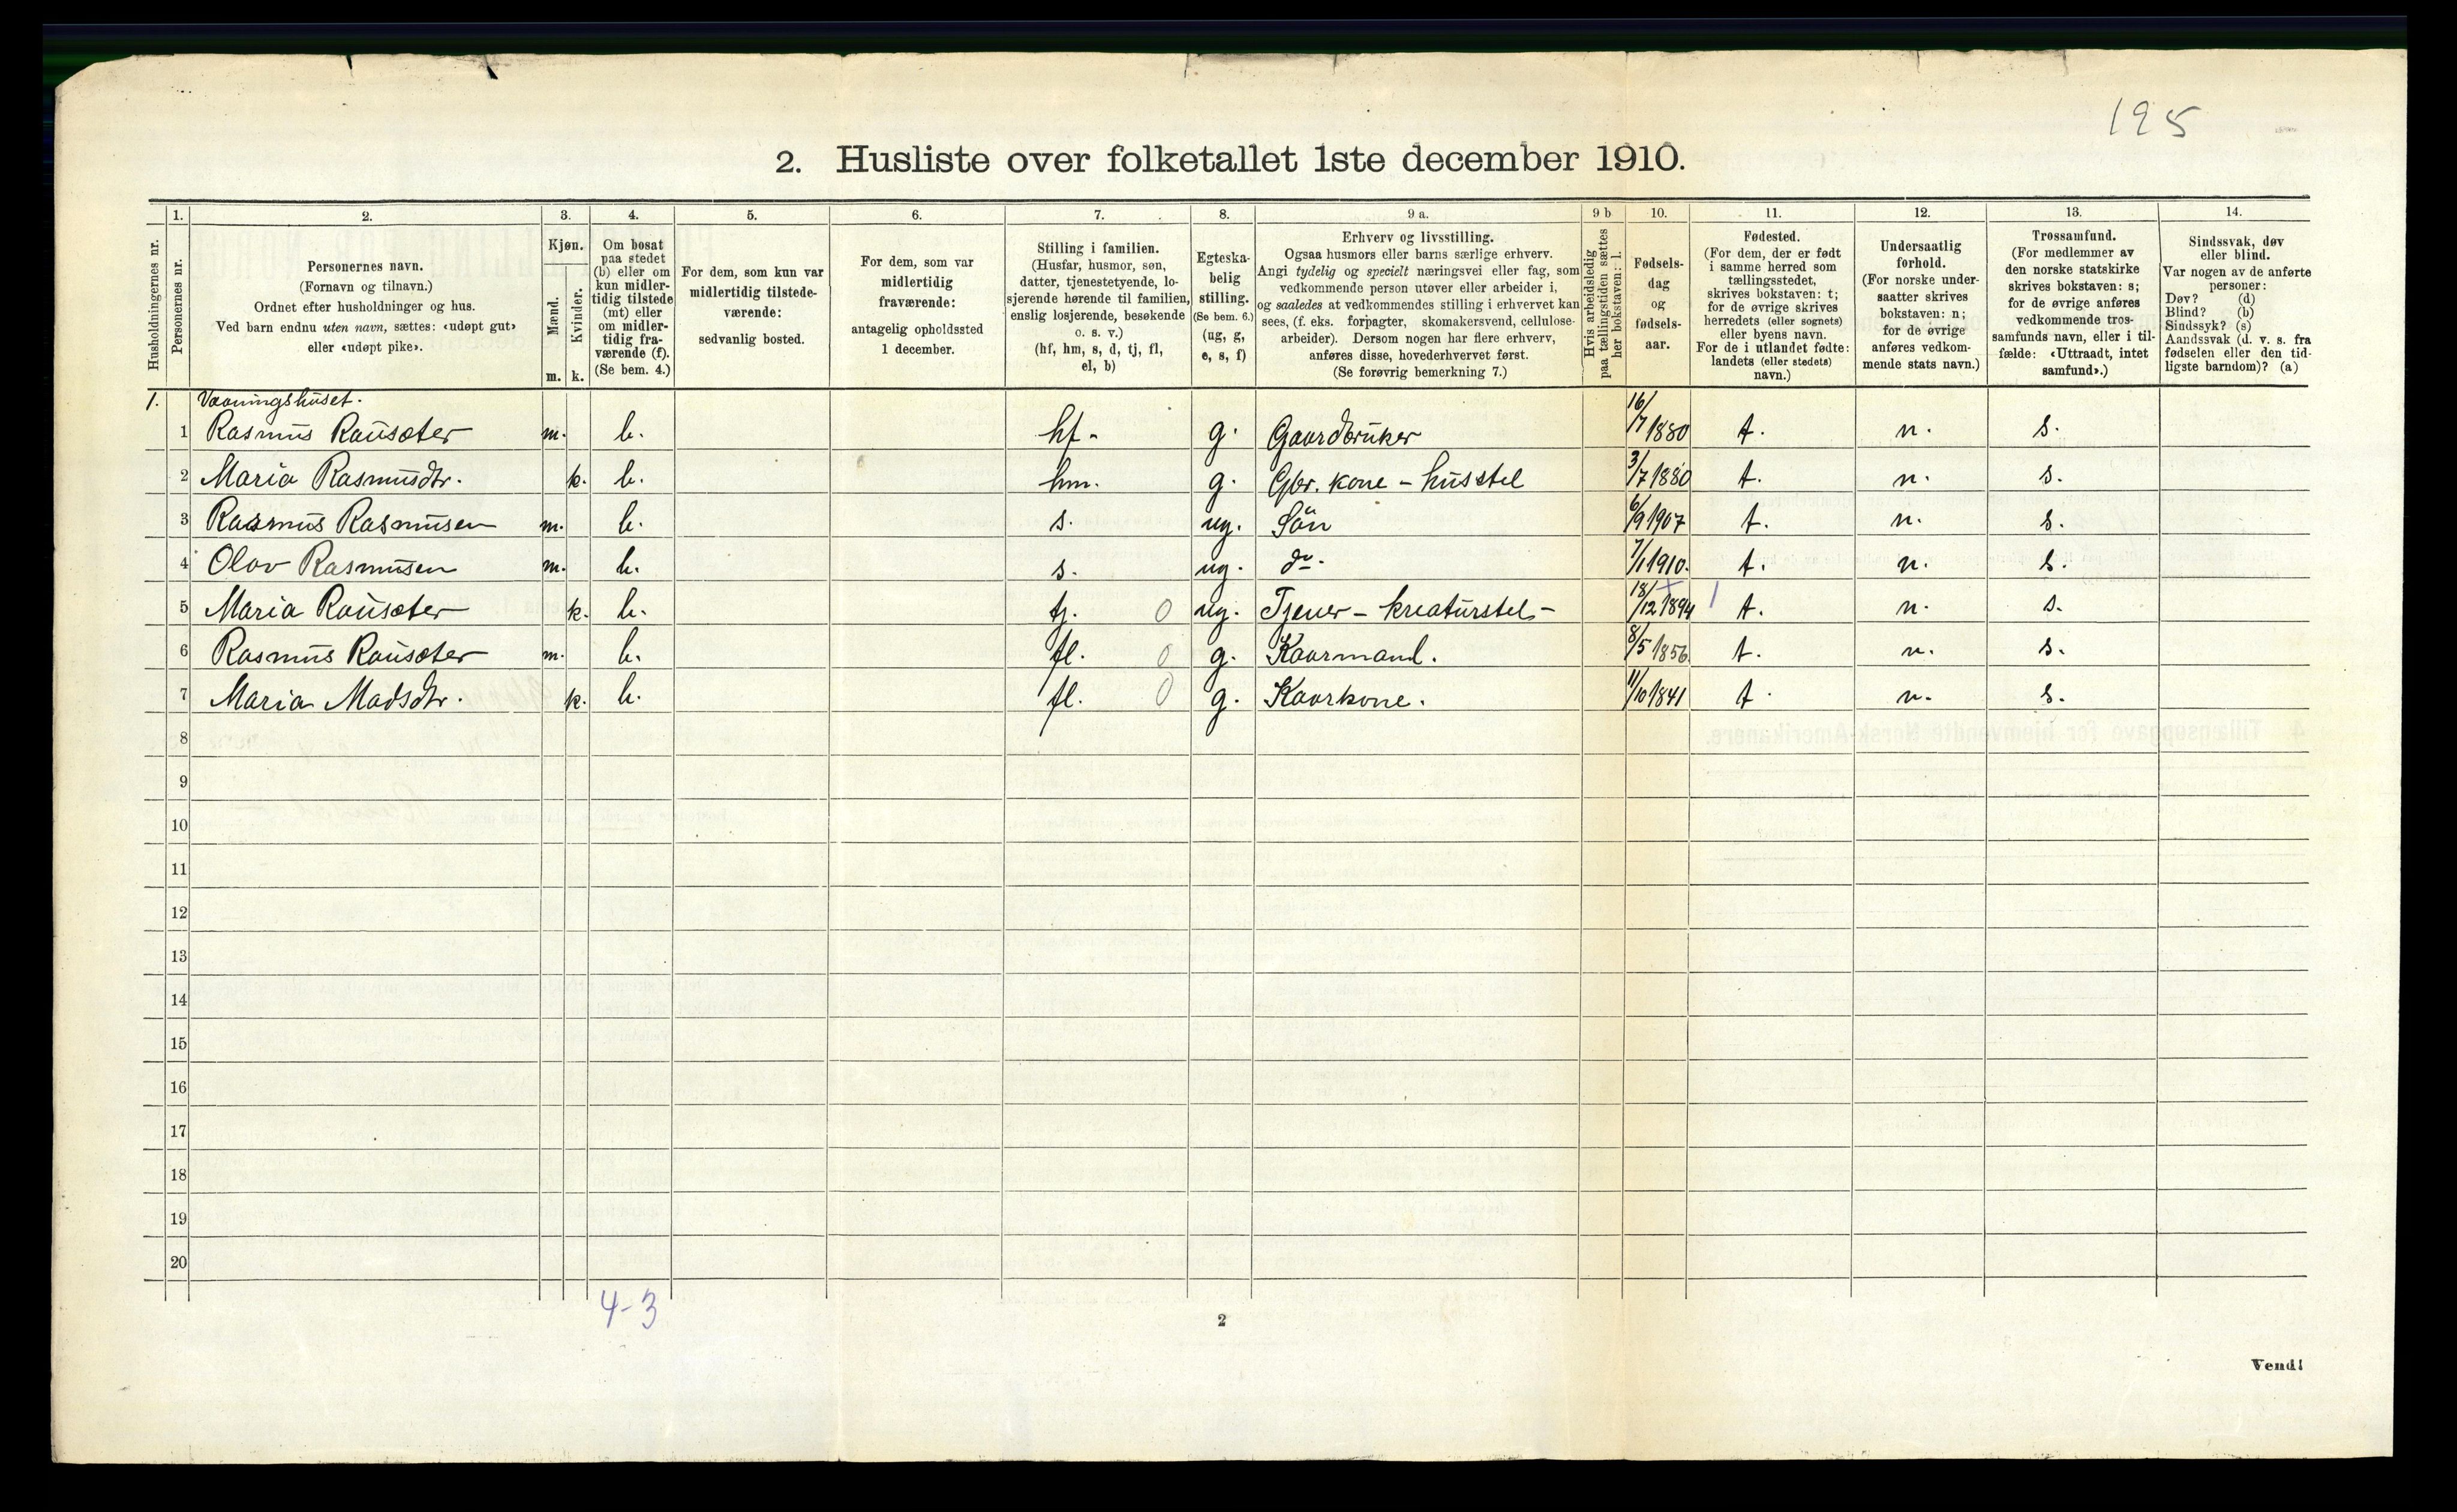 195
2. Husliste over folketallet 1ste december 1910.
Husholdningernes nr.
1.
Personernes nr.
2.
Personernes navn.
(Fornavn og tilnavn.)
Ordnet efter husholdninger og hus.
Ved barn endnu uten navn, sættes: «udøpt gut»
eller «udøpt pike».
3.
Kjøn.
Mænd.
Kvinder.
m. k.
4.
Om bosat
paa stedet
(b) eller om
kun midler-
tidig tilstede
(mt) eller
om midler-
tidig fra-
værende (f).
(Se bem. 4.)
5.
For dem, som kun var
midlertidig tilstede-
værende:
sedvanlig bosted.
6.
For dem, som var
midlertidig
fraværende:
antagelig opholdssted
1 december.
7.
Stilling i familien.
(Husfar, husmor, søn,
datter, tjenestetyende, lo-
sjerende hørende til familien,
enslig losjerende, besøkende
o. s. v.)
(hf, hm, s, d, tj, fl,
el, b)
8.
Egteska-
belig
stilling.
(Se bem. 6.)
(ug, g,
e, s, f)
9 a.
Erhverv og livsstilling.
Ogsaa husmors eller barns særlige erhverv.
Angi tydelig og specielt næringsvei eller fag, som
vedkommende person utøver eller arbeider i,
og saaledes at vedkommendes stilling i erhvervet kan
sees, (f. eks. forpagter, skomakersvend, cellulose-
arbeider). Dersom nogen har flere erhverv,
anføres disse, hovederhvervet først.
(Se forøvrig bemerkning 7.)
9 b
Hvis arbeidsledig
paa tællingstiden sættes
her bokstaven: l.
10.
Fødsels-
dag
og
fødsels-
aar.
11.
Fødested.
(For dem, der er født
i samme herred som
tællingsstedet,
skrives bokstaven: t;
for de øvrige skrives
herredets (eller sognets)
eller byens navn.
For de i utlandet fødte:
landets (eller stedets)
navn.)
12.
Undersaatlig
forhold.
(For norske under-
saatter skrives
bokstaven: n;
for de øvrige
anføres vedkom-
mende stats navn.)
13.
Trossamfund.
(For medlemmer av
den norske statskirke
skrives bokstaven: s;
for de øvrige anføres
vedkommende tros-
samfunds navn, eller i til-
fælde: «Uttraadt, intet
samfund».)
14.
Sindssvak, døv
eller blind.
Var nogen av de anførte
personer:
Døv? (d)
Blind? (b)
Sindssyk? (s)
Aandssvak (d. v. s. fra
fødselen eller den tid-
ligste barndom)? (a)
1. Vaaningshuset.
1 Rasmus Rausæter m. b. hf - g. Gaardbruker 16/7 1880 t. n. s.
2 Maria Rasmusdtr. k. b. hm. g. Gbr. kone - husstel 3/7 1880 t. n. s.
3 Rasmus Rasmusen m. b. s. ug. Sön 6/9 1907 t. n. s.
4 Olav Rasmusen m. b. s. ug. do. 7/1 1910. t. n. s.
5 Maria Rausæter k. b. tj. 0 ug. Tjener - kreaturstel - 18/12 1894 t. n. s.
6 Rasmus Rausæter m. b. fl. 0 g. Kaarmand. 8/5 1856 t. n. s.
7 Maria Madsdtr. k. b. fl. 0 g. Kaarkone. 11/10 1841 t. n. s.
8
9
10
11
12
13
14
15
16
17
18
19
20
4-3
2
Vend!